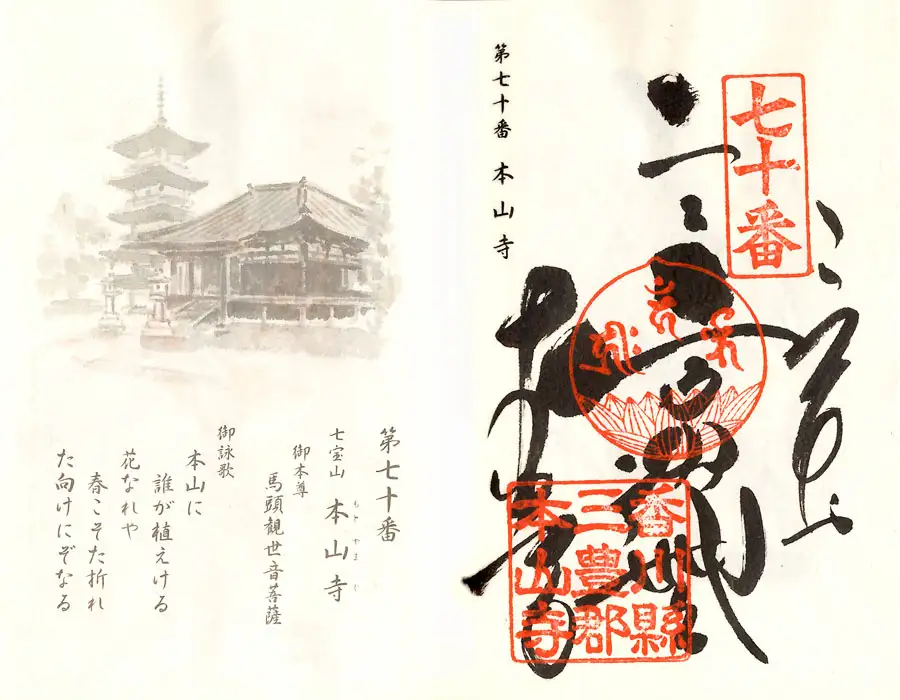 第七十番 本山寺
七十番
本山寺
香川縣
三豊郡
本山寺
第七十番
七宝山 本山寺
もとやまじ
御本尊
馬頭観世音菩薩
御詠歌
本山に
誰が植えける
花なれや
春こそた折れ
た向けにぞなる